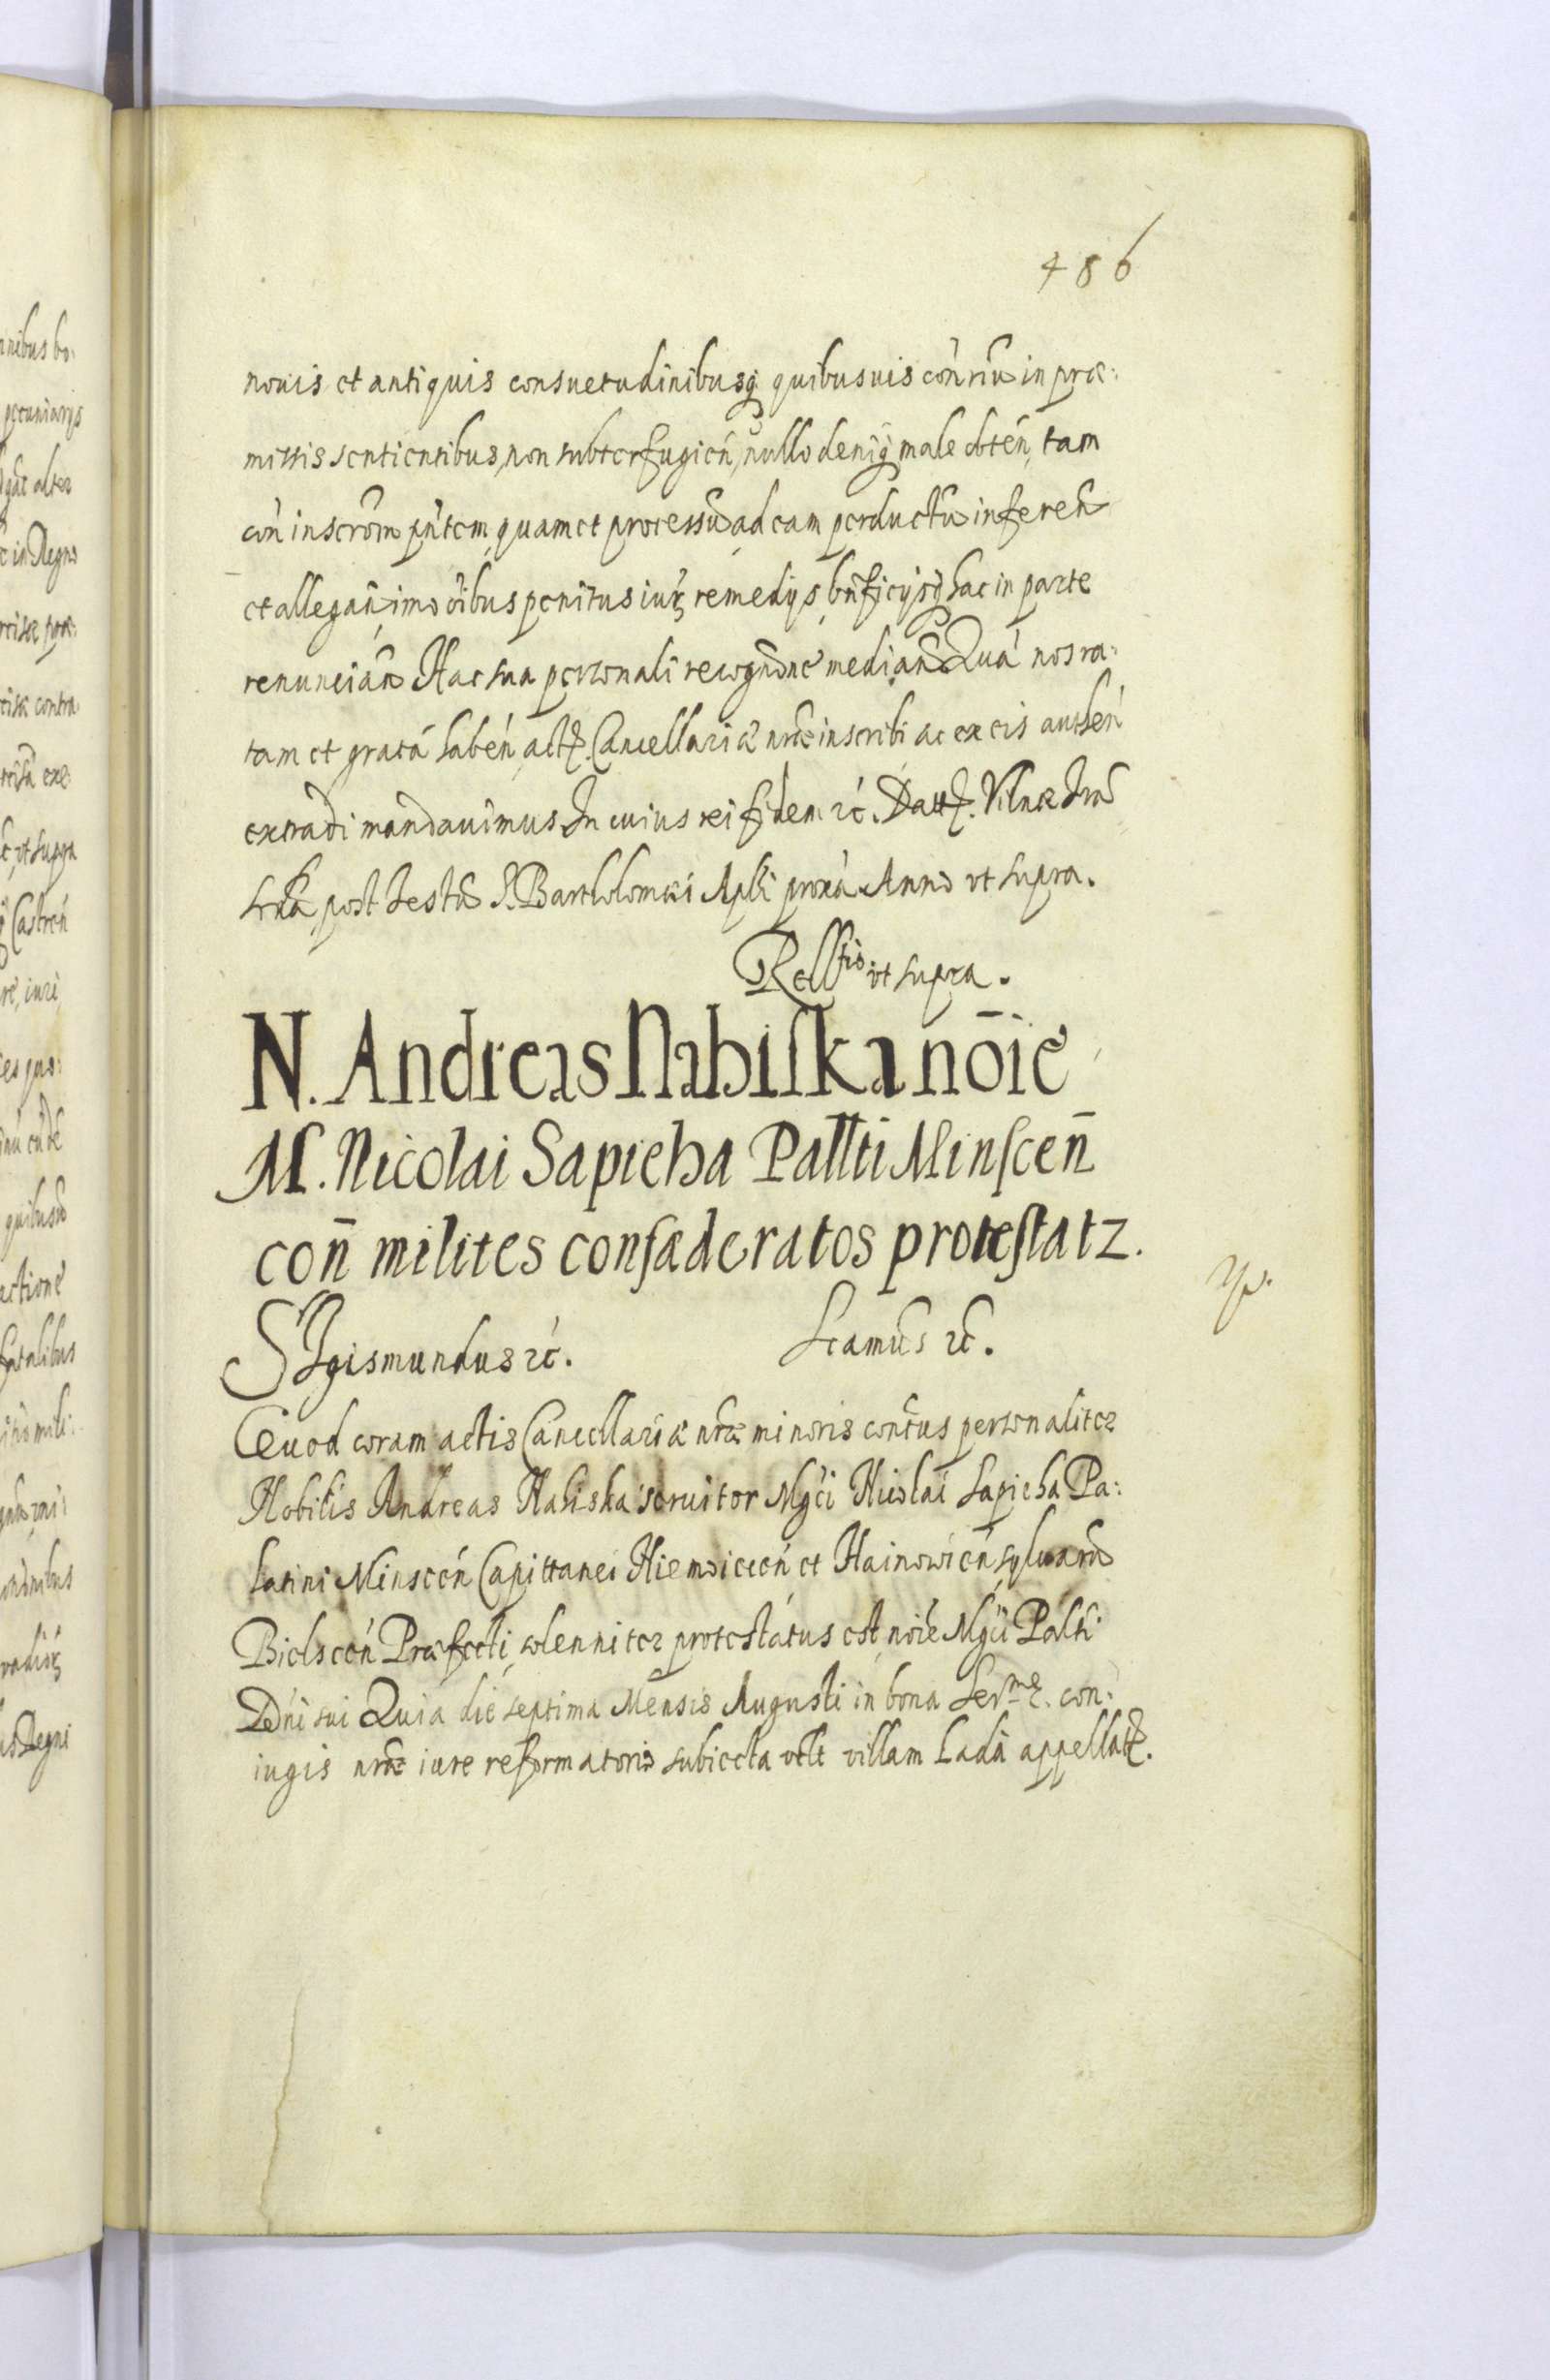 486
nouis et antiquis consuetudinibusq̃ quibusuis cónriũ in præ:
missis sentientibus, non subterfugień, nullo deniq̃ male obtéń, tam
cóń inscrõm pñtem, quam et processũ ad eam perductũ inferẽń
et allegań, imo õibus penitus iurꝭ remedijs, bñficijsq̃ hac in parte
renuncian̄ Hac sua personali recognõne median̄ Quá nos ra:
tam et gratá habéń, actꝭ. Cancellariæ nr̃æ inscribi ac ex eis authéń
extradi mandauimus In cuius rei fidem ꝛć. Dattꝭ. Vilnæ
post festũ S. Bartholomæi Apl̃i proxá Anno vt supra.
Rell^tio vt supra.
N. Andreas Nabiſka nõie
M. Nicolai Sapieha Pallti Minſcen̄
con̄ milites confæderatos proteſtatz.
SIgismundus ꝛć. Seamũs ꝛc̃.
Quod coram actis Cancellariæ nr̃æ minoris contus personaliter
Nobilis Andreas Nabiska seruitor Mgći Nicolai Sapieha Pa:
latini Minscéń Capittanei et Hainowicéń, syluarũ
Bielscéń Præfecti, solenniter protestátus est, noie Mgći Palti
Dńi sui Quia die septima Mensis Augusti in bona Ser^mæ. con:
iugis nr̃æ iure reformatorio subiecta vtlt villam Lada appellatꝭ.